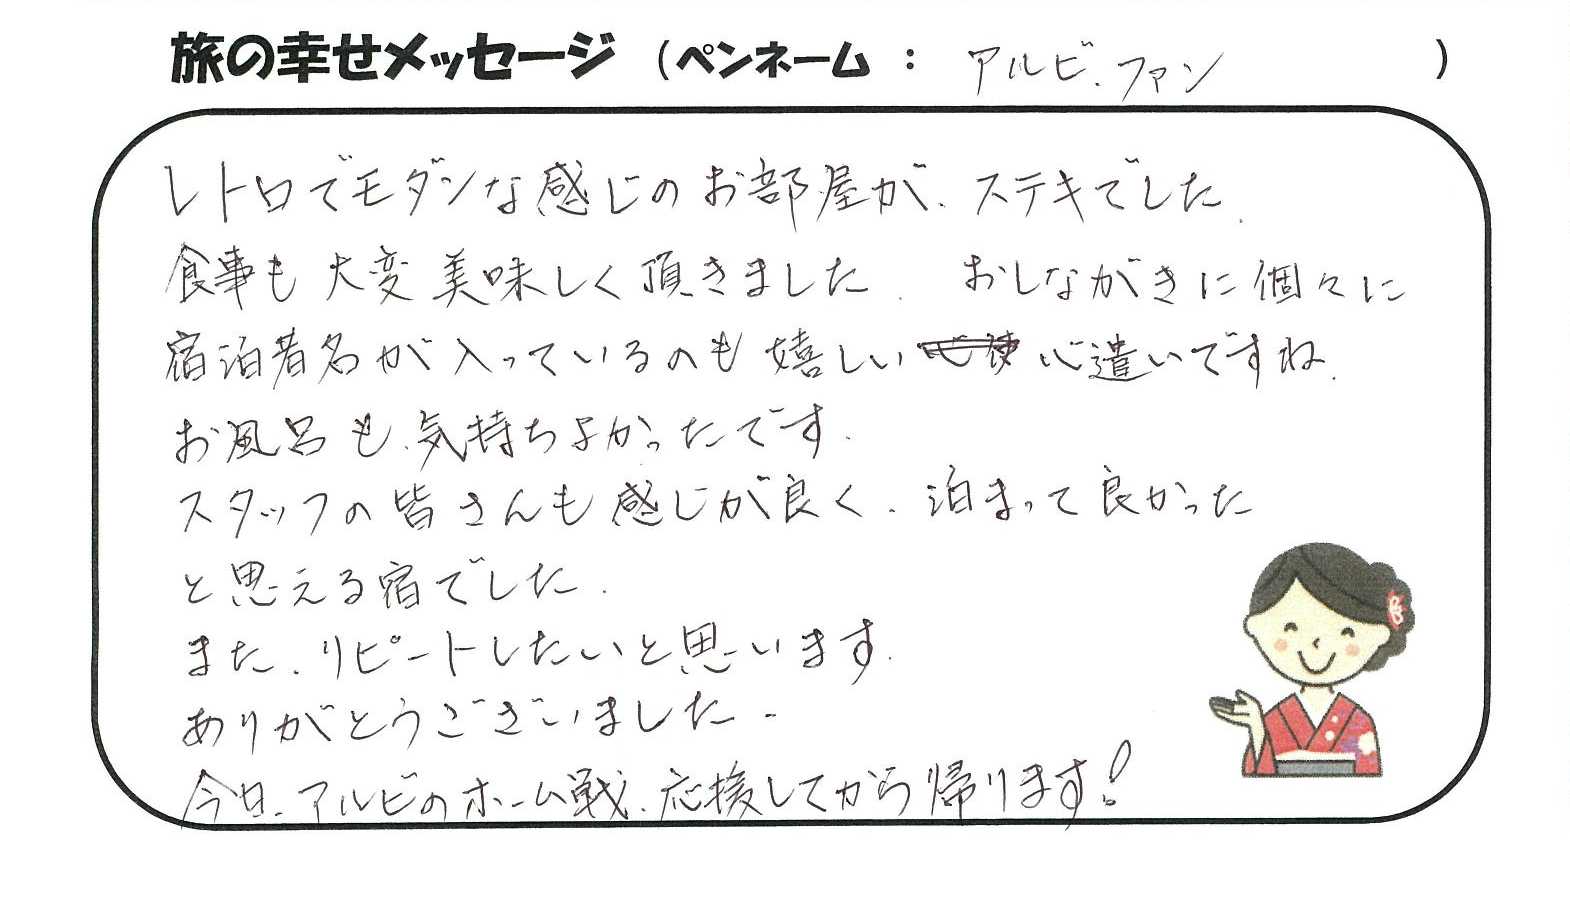 旅の幸せメッセージ （ペンネーム ： アルビ.ファン ）
レトロでモダンな感じのお部屋が、ステキでした.
食事も大変美味しく頂きました. おしながきに個々に
宿泊者名が入っているのも嬉しい心遣いですね.
お風呂も、気持ちよかったです.
スタッフの皆さんも感じが良く、泊まって良かった
と思える宿でした.
また、リピートしたいと思います.
ありがとうございました.
今日、アルビのホーム戦、応援してから帰ります!